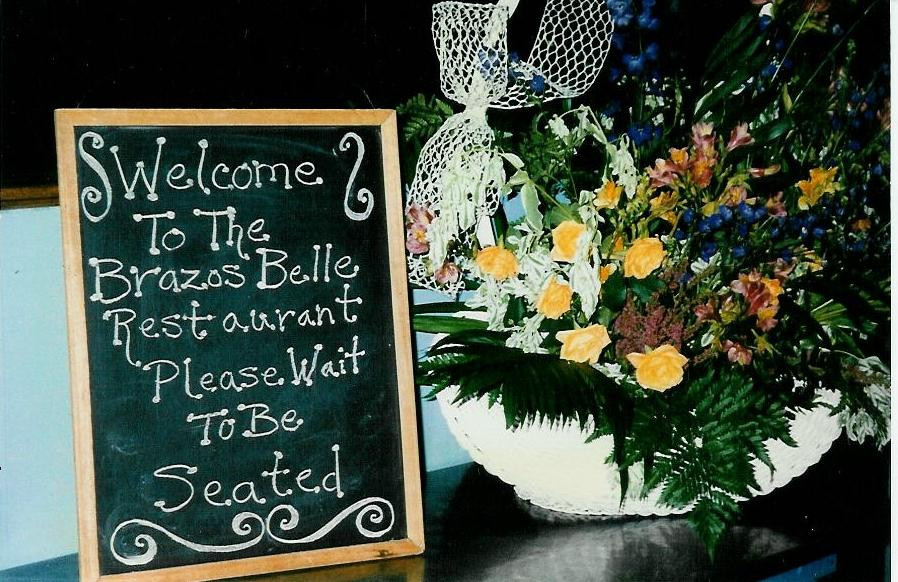 Welcome
To The
Brazos Belle
Restaurant
Please Wait
To Be
Seated